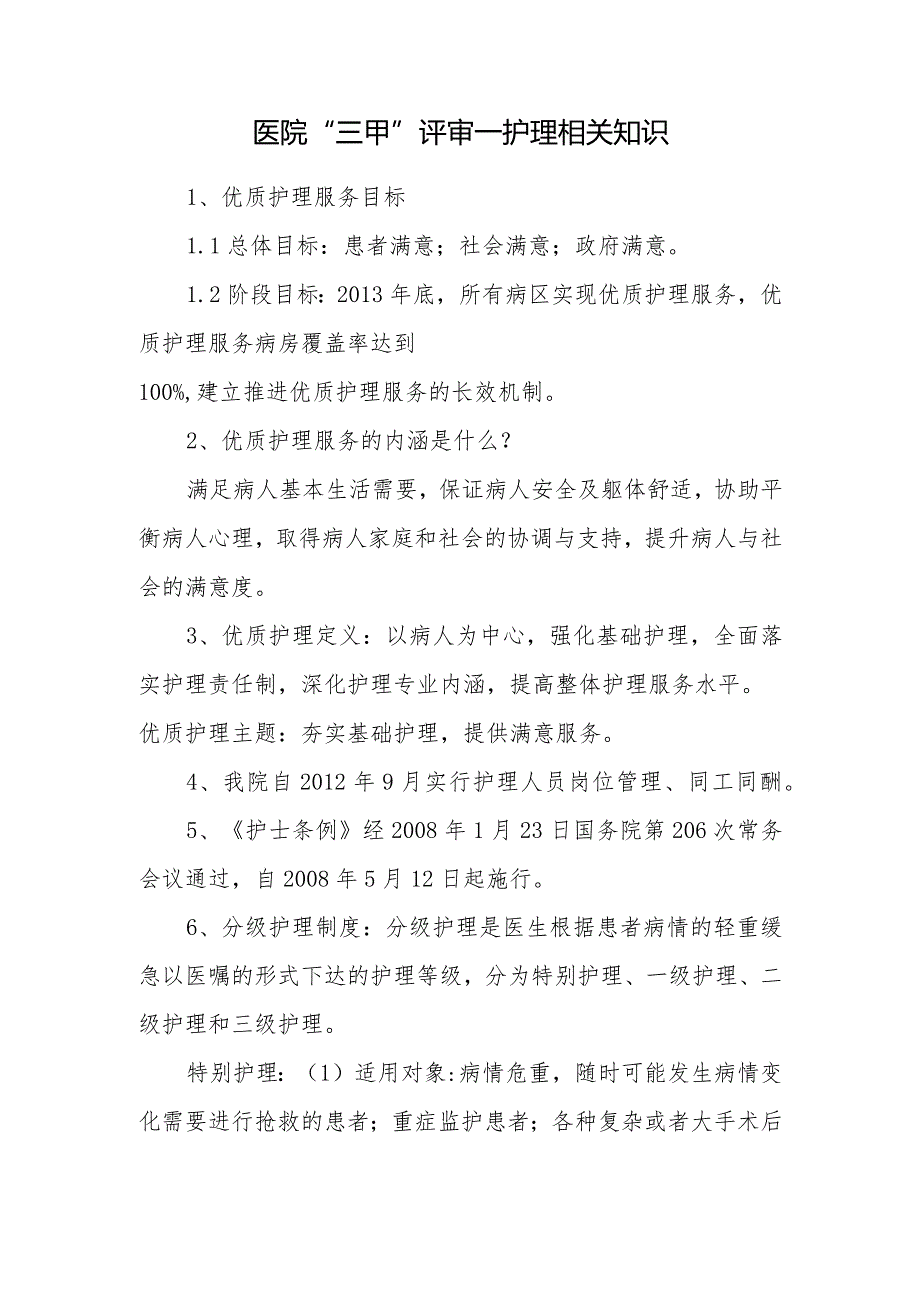 医院“三甲”评审一护理相关知识
1、优质护理服务目标
1.1 总体目标：患者满意；社会满意；政府满意。
1.2 阶段目标：2013 年底，所有病区实现优质护理服务，优
质护理服务病房覆盖率达到
100%,建立推进优质护理服务的长效机制。
2、优质护理服务的内涵是什么？
满足病人基本生活需要，保证病人安全及躯体舒适，协助平
衡病人心理，取得病人家庭和社会的协调与支持，提升病人与社
会的满意度。
3、优质护理定义：以病人为中心，强化基础护理，全面落
实护理责任制，深化护理专业内涵，提高整体护理服务水平。
优质护理主题：夯实基础护理，提供满意服务。
4、我院自 2012 年 9 月实行护理人员岗位管理、同工同酬。
5、《护士条例》经 2008 年 1 月 23 日国务院第 206 次常务
会议通过，自 2008 年 5 月 12 日起施行。
6、分级护理制度：分级护理是医生根据患者病情的轻重缓
急以医嘱的形式下达的护理等级，分为特别护理、一级护理、二
级护理和三级护理。
特别护理：（1）适用对象:病情危重，随时可能发生病情变
化需要进行抢救的患者；重症监护患者；各种复杂或者大手术后